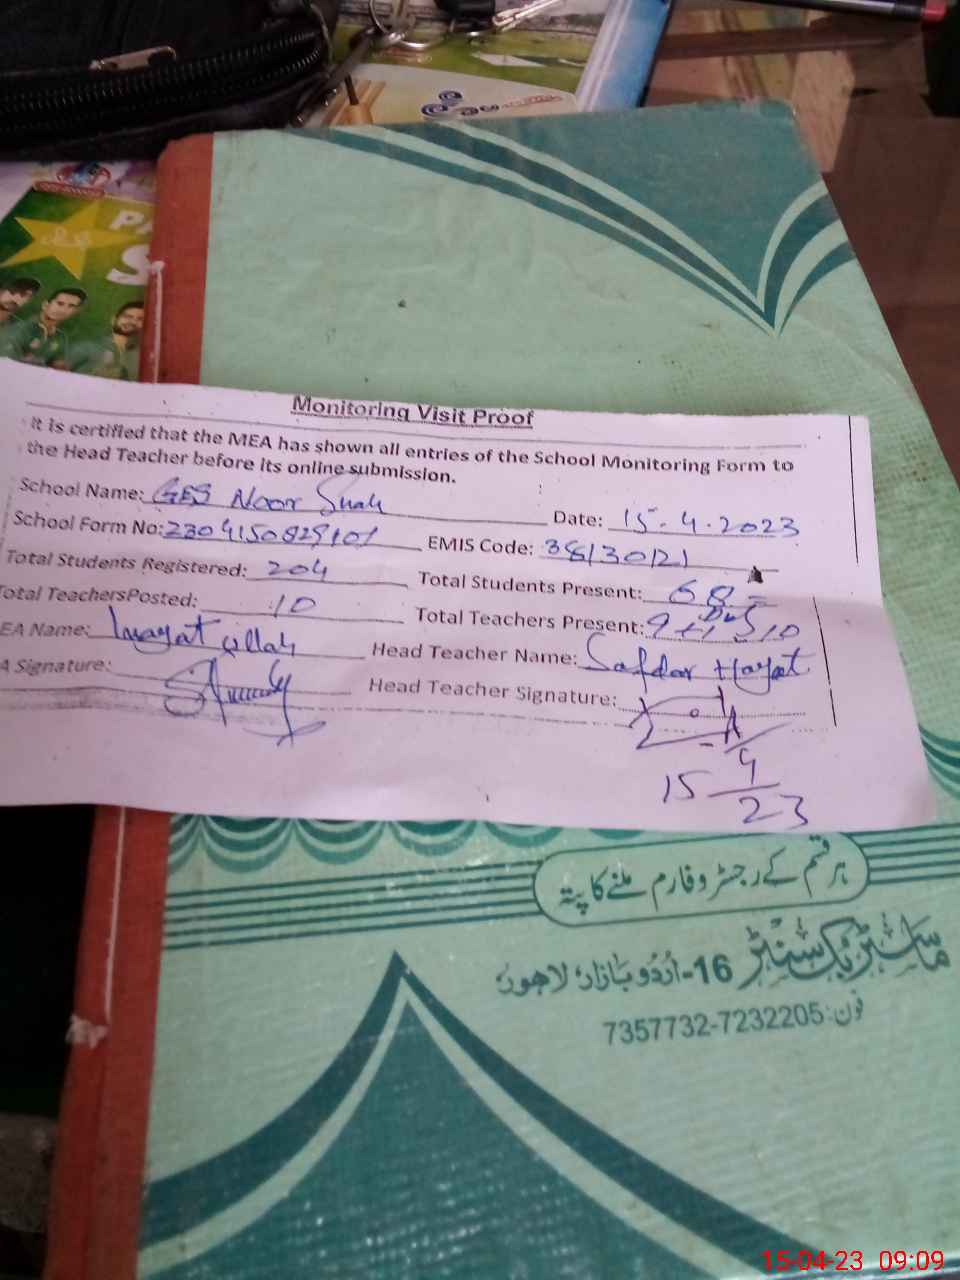 Monitoring Visit Proof
It is certified that the MEA has shown all entries of the School Monitoring Form to
the Head Teacher before its online submission.
School Name: GES Noor Shah Date: 15.4.2023
School Form No: 2304150829101 EMIS Code: 38130121
Total Students Registered: 204 Total Students Present: 68
Total Teachers Posted: 10 Total Teachers Present: 9+1 10
EA Name: Inayat ullah Head Teacher Name: Safdar Hayat
A Signature: Head Teacher Signature:
15 4/23
ہر قسم کے رجسٹر و فارم ملنے کا پتہ
ماسٹر بک سنٹر 16-اُردو بازار لاہور
فون: 7357732-7232205
15-04-23 09:09